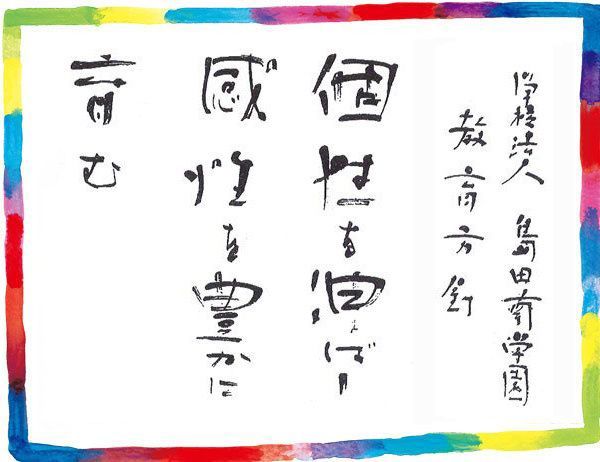 学校法人 島田南学園
教育方針
個性を伸ばし
感性を豊かに
育む